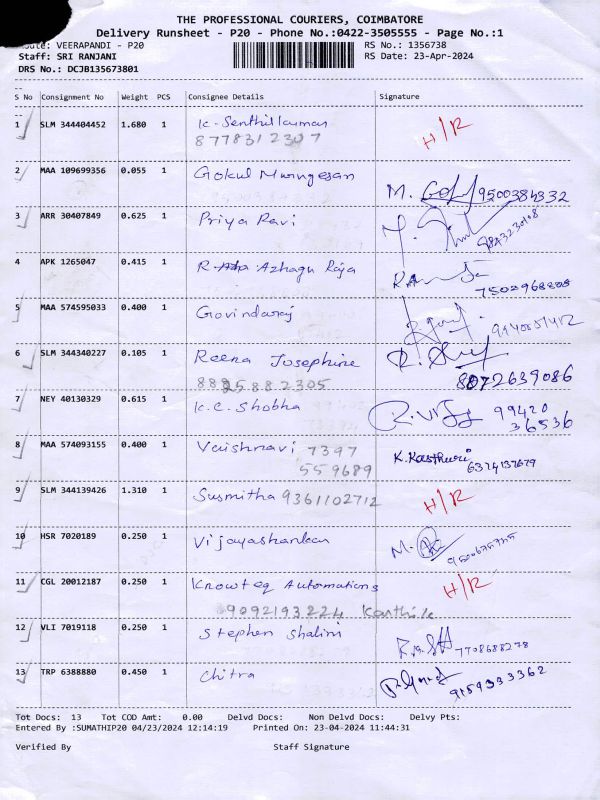 THE PROFESSIONAL COURIERS, COIMBATORE
Delivery Runsheet - P20 - Phone No.:0422-3505555 - Page No.:1
Route: VEERAPANDI - P20 RS No.: 1356738
Staff: SRI RANJANI RS Date: 23-Apr-2024
DRS No.: DCJB135673801
S No Consignment No Weight PCS Consignee Details Signature
1 SLM 344404452 1.680 1 K. Senthilkumar H/R
8778312307
2 MAA 109699356 0.055 1 Gokul Murugesan
M. 9500384332
3 ARR 30407849 0.625 1 Priya Ravi
4 APK 1265047 0.415 1 R. Azhagu Raja
7502968808
5 MAA 574595033 0.400 1 Govindaraj
6 SLM 344340227 0.105 1 Reena Josephine
8825882305 8072639086
7 NEY 40130329 0.615 1 K.C. Shobha 99420
36536
8 MAA 574093155 0.400 1 Vaishnavi 7397 K. Kasthuri
559689 6374137679
9 SLM 344139426 1.310 1 Susmitha 9361102712 H/R
10 HSR 7020189 0.250 1 Vijayashankar M.
11 CGL 20012187 0.250 1 Knowteq Automations H/R
9092193224 Karthik
12 VLI 7019118 0.250 1 Stephen Shalini
7708688278
13 TRP 6388880 0.450 1 Chitra
9159333362
Tot Docs: 13 Tot COD Amt: 0.00 Delvd Docs: Non Delvd Docs: Delvy Pts:
Entered By :SUMATHIP20 04/23/2024 12:14:19 Printed On: 23-04-2024 11:44:31
Verified By Staff Signature